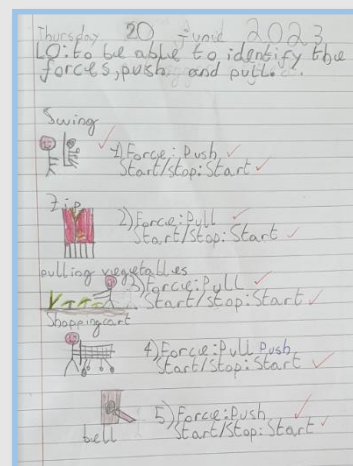 Thursday 20 June 2023
LO: to be able to identify the
forces, push and pull.
Swing
1) Force: Push
Start/stop: Start
Zip
2) Force: Pull
Start/stop: Start
pulling vegetables
3) Force: Pull
Start/stop: Start
Shopping cart
4) Force: Pull Push
Start/stop: Start
5) Force: Push
Start/stop: Start
bell